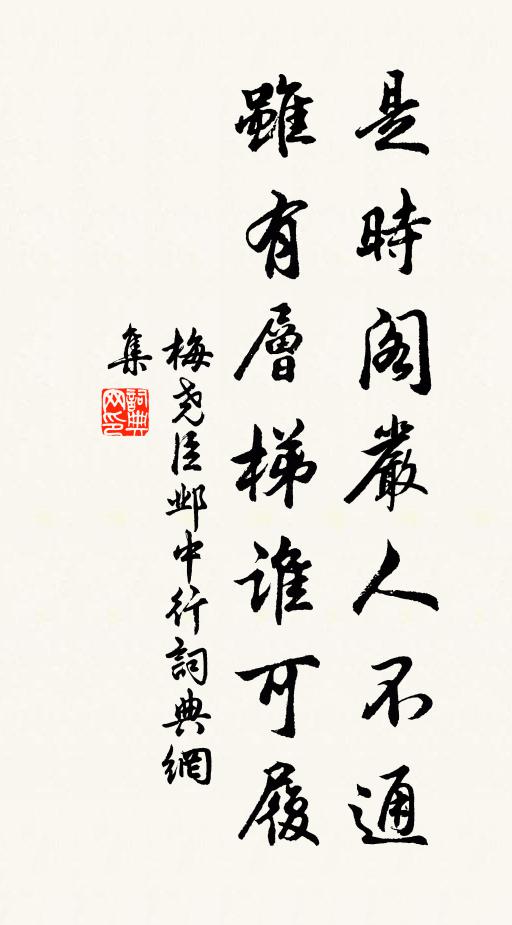 是時閣嚴人不通
雖有層梯誰可履
梅尧臣邺中行詞典網
集
詞典
网印